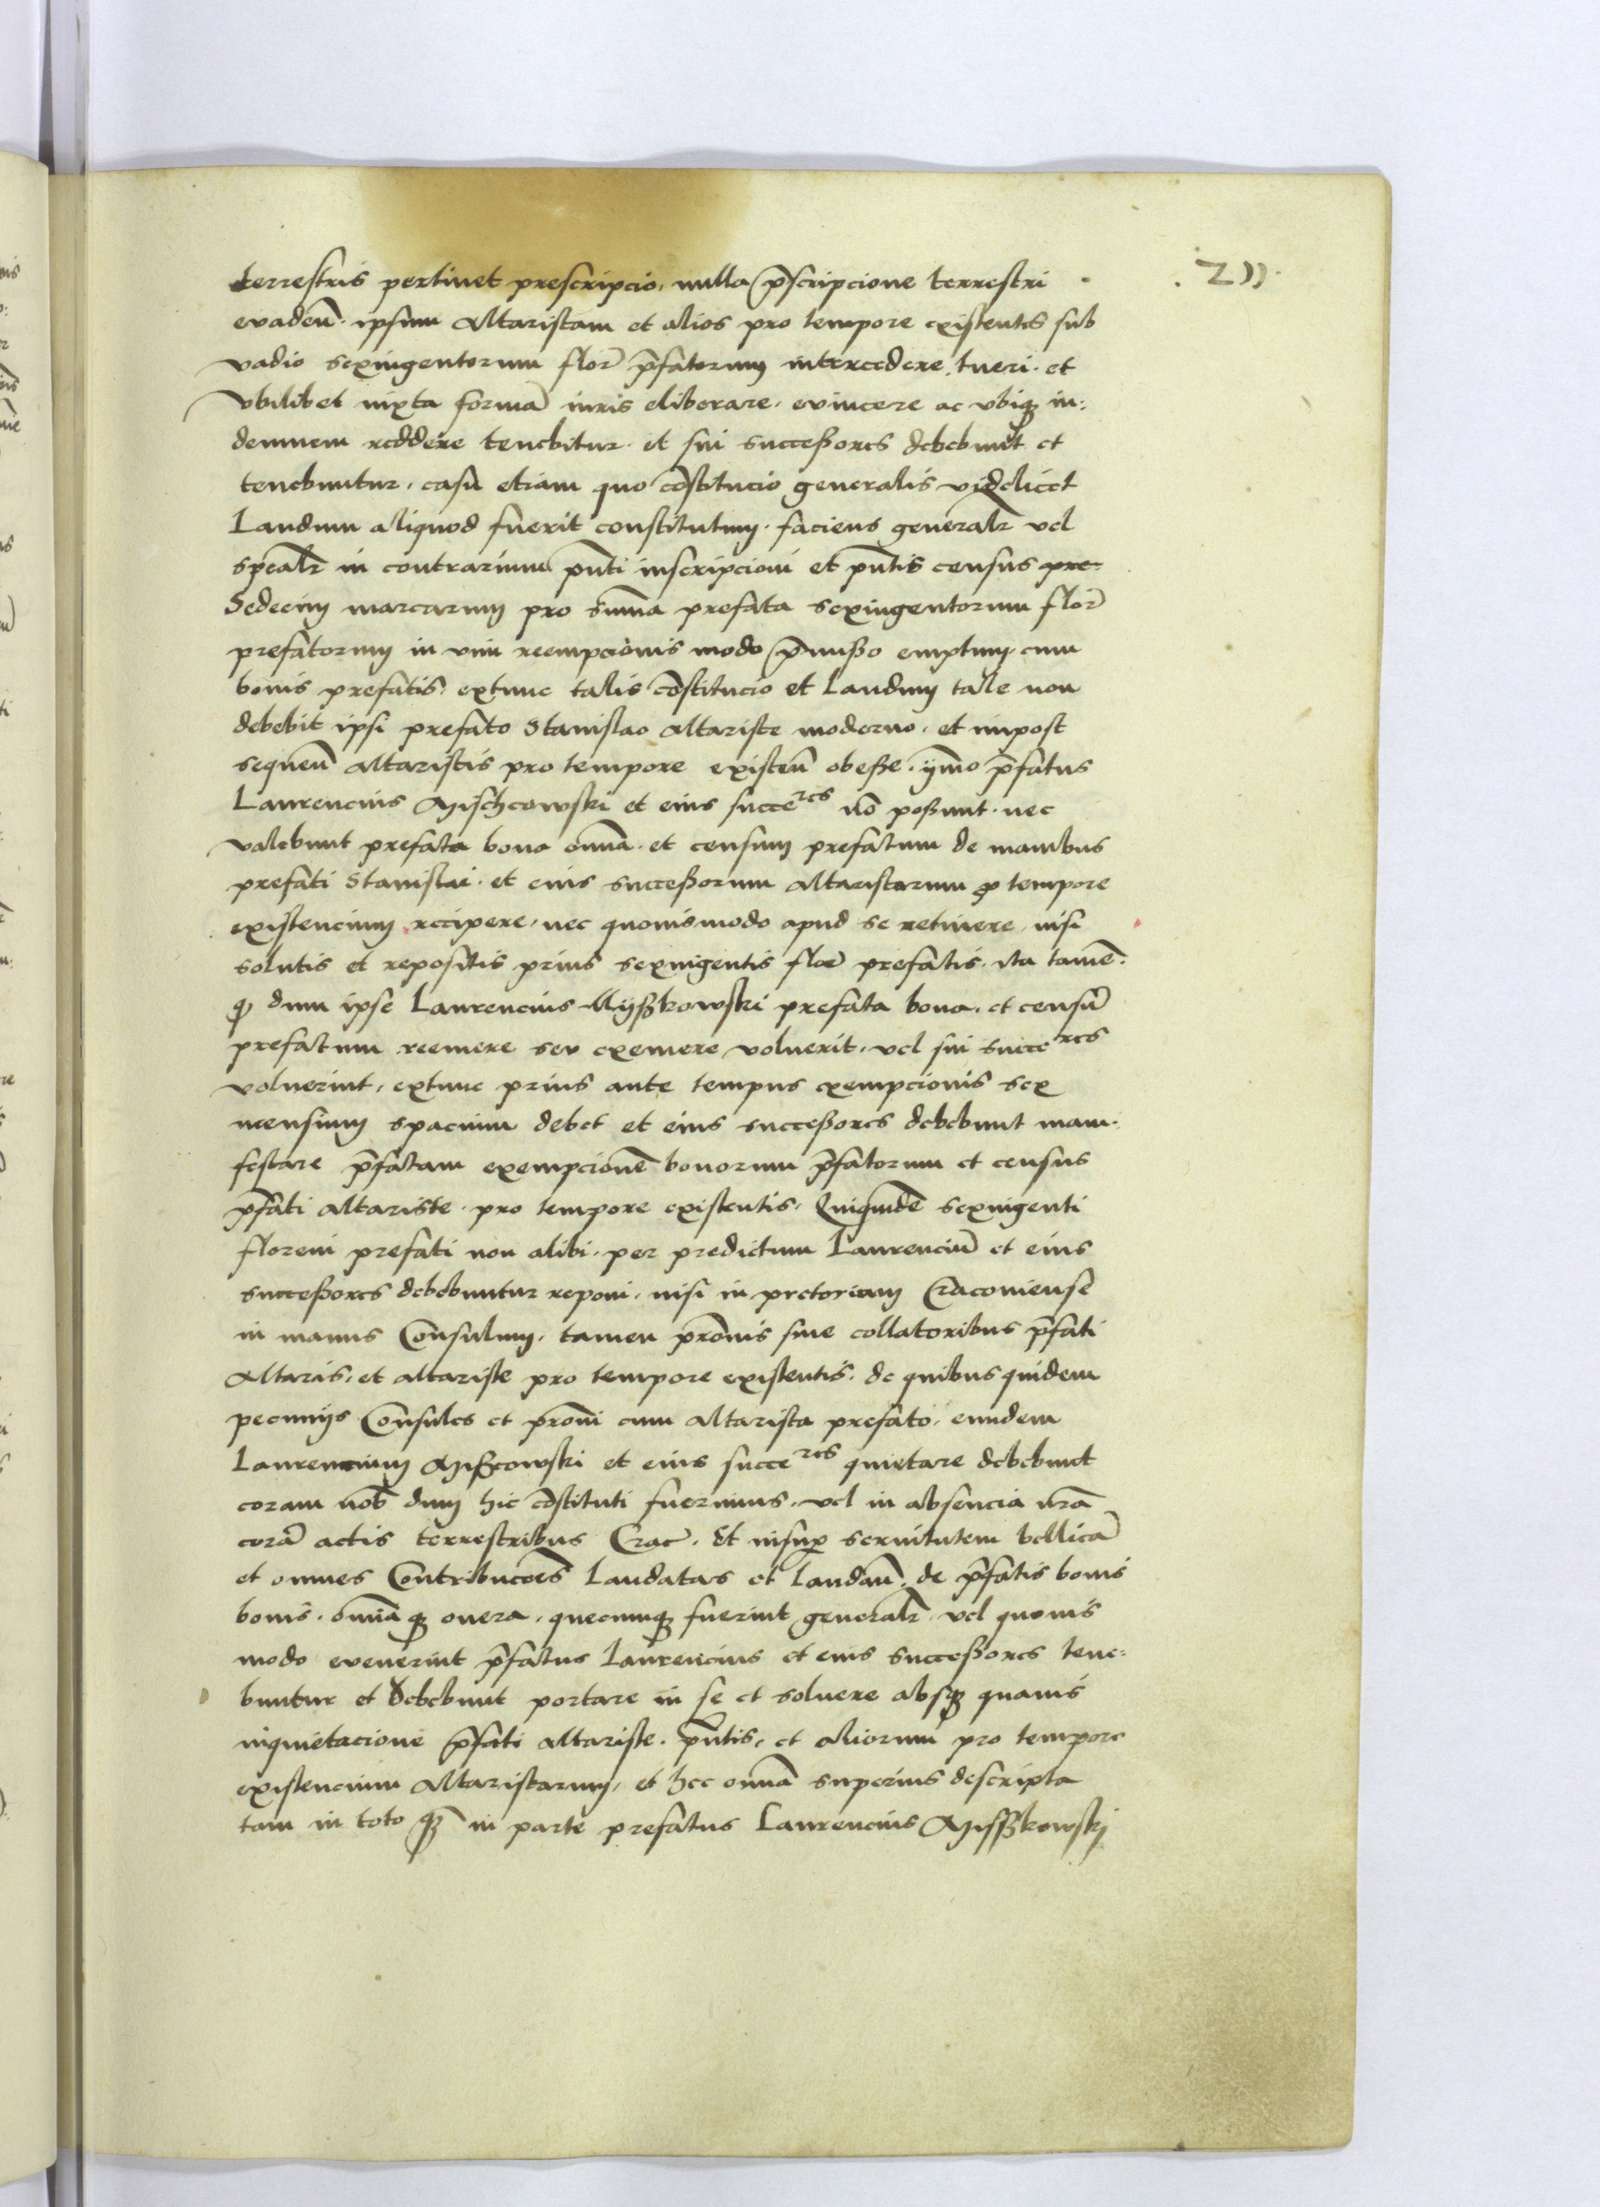 . 211.
terrestris pertinet prescripcio, nulla p̄scripcione terrestri
evadeñ. ipsum Altaristam et alios pro tempore existentes sub
vadio sexingentorum flor̄ p̄fatorum intercedere, tueri. et
vbilibet iuxta formā iuris eliberare, evincere ac vbiqȝ in:
demnem reddere tenebitur. et sui successores debebunt et
tenebuntur, casū etiam quo cōstitucio generalis videlicet
Laudum aliquod fuerit constitutum. faciens generalr̄ vel
spealr̄ in contrarium pn̄ti inscripcioni et pn̄tis census
Sedecim marcarum pro sum̄a prefata sexingentorum flor̄
prefatorum in vim reempcionis modo p̄misso emptum, cum
bonis prefatis, extunc talis cōstitucio et Laudum tale non
debebit ipsi prefato Stanislao altariste moderno, et impost
sequeñ altaristis pro tempore existeñ obesse. ymmo p̄fatus
Laurencius Mischcowski et eius succeres nō possunt. nec
valebunt prefata bona om̄ia. et censum prefatum de manibus
prefati Stanislai. et eius successorum altaristarum ꝓ tempore
existencium recipere, nec quovismodo apud se retinere, nisi
solutis et repositis prius sexingentis flor̄ prefatis. ita tamē.
ꝙ dum ipse Laurencius Myszkowski prefata bona. et censū
prefatum reemere seu exemere voluerit, vel sui succeres
voluerint, extunc prius ante tempus exempcionis sex
mensium spacium debet et eius successores debebunt mani:
festare p̄fatam exempcionē bonorum p̄fatorum et census
p̄fati altariste. pro tempore existentis. Quiquidē sexingenti
floreni prefati non alibi. per predictum Laurenciū et eius
successores debebuntur reponi, nisi in pretorium Cracoviense
in manus Consulum, tamen provīs sive collatoribus p̄fati
Altaris, et altariste pro tempore existentis. de quibus quidem
pecuniis Consules et provī cum altarista prefato, eundem
Laurencium Miszcowski et eius succeres quietare debebunt
coram nob̄ dum hic cōstituti fuerimus. vel in absencia nr̄a
corā actis terrestribus Crac̄. Et insuꝑ servitutem bellicā
et omnes Contribucōes Laudatas et laudañ. de p̄fatis bonis
bonis. om̄ia qȝ onera. quecunqȝ fuerint generalr̄. vel quovis
modo evenerint p̄fatus Laurencius et eius successores tene:
buntur et debebunt portare in se et solvere absqȝ quavis
inquietacione p̄fati altariste. pn̄tis, et aliorum pro tempore
existencium Altaristarum, et hec om̄ia superius descripta
tam in toto qȝ̄ in parte prefatus Laurencius Misszkowskj